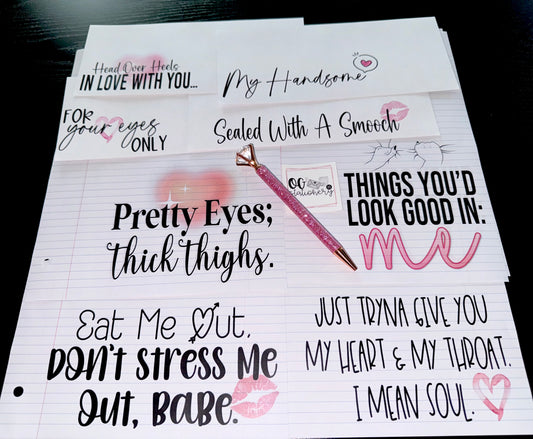 Head Over Heels
IN LOVE WITH YOU...
My Handsome
FOR
your eyes
ONLY
Sealed With A Smooch
Pretty Eyes;
thick thighs.
OG
Stationery
THINGS YOU'D
LOOK GOOD IN:
me
Eat Me Out,
DON'T STRESS ME
OUT, BABE.
JUST TRYNA GIVE YOU
MY HEART & MY THROAT.
I MEAN SOUL.